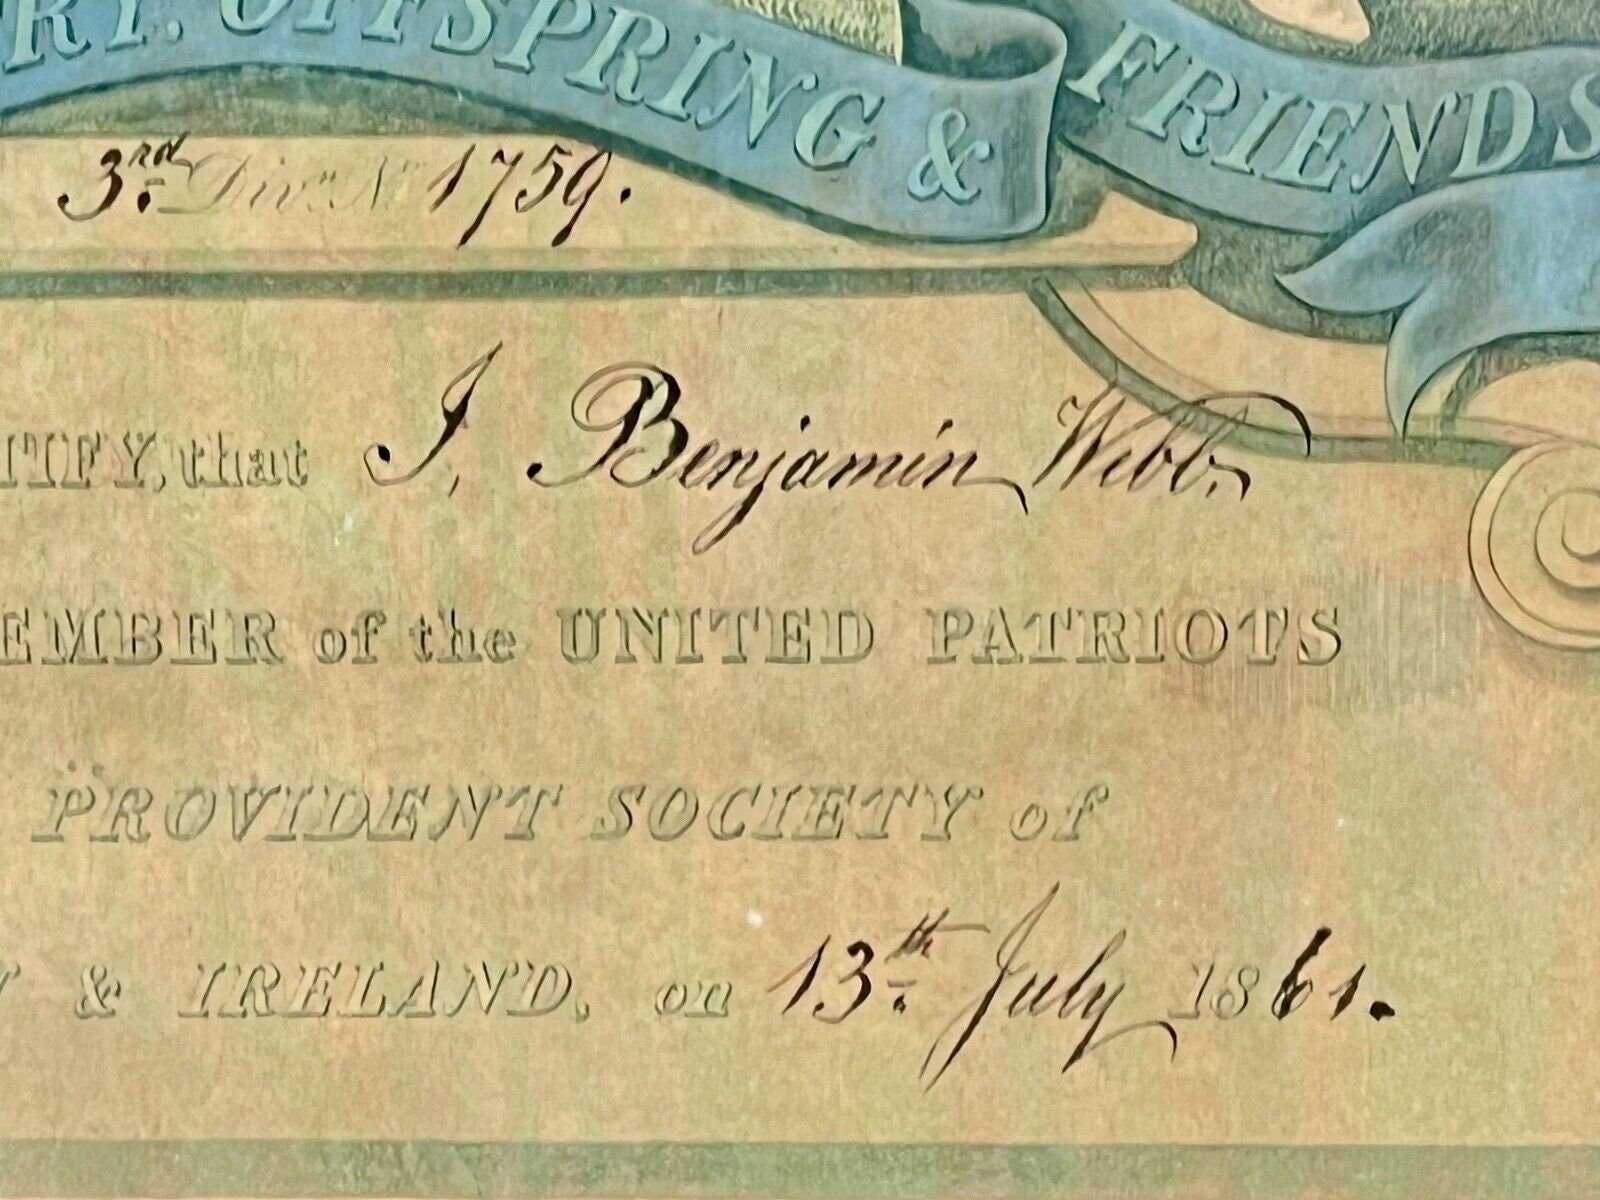 RY. OFFSPRING & FRIENDS
3rd. Divn. No 1759.
TIFY, that J, Benjamin Webb,
EMBER of the UNITED PATRIOTS
PROVIDENT SOCIETY of
& IRELAND, on 13th. July 1861.